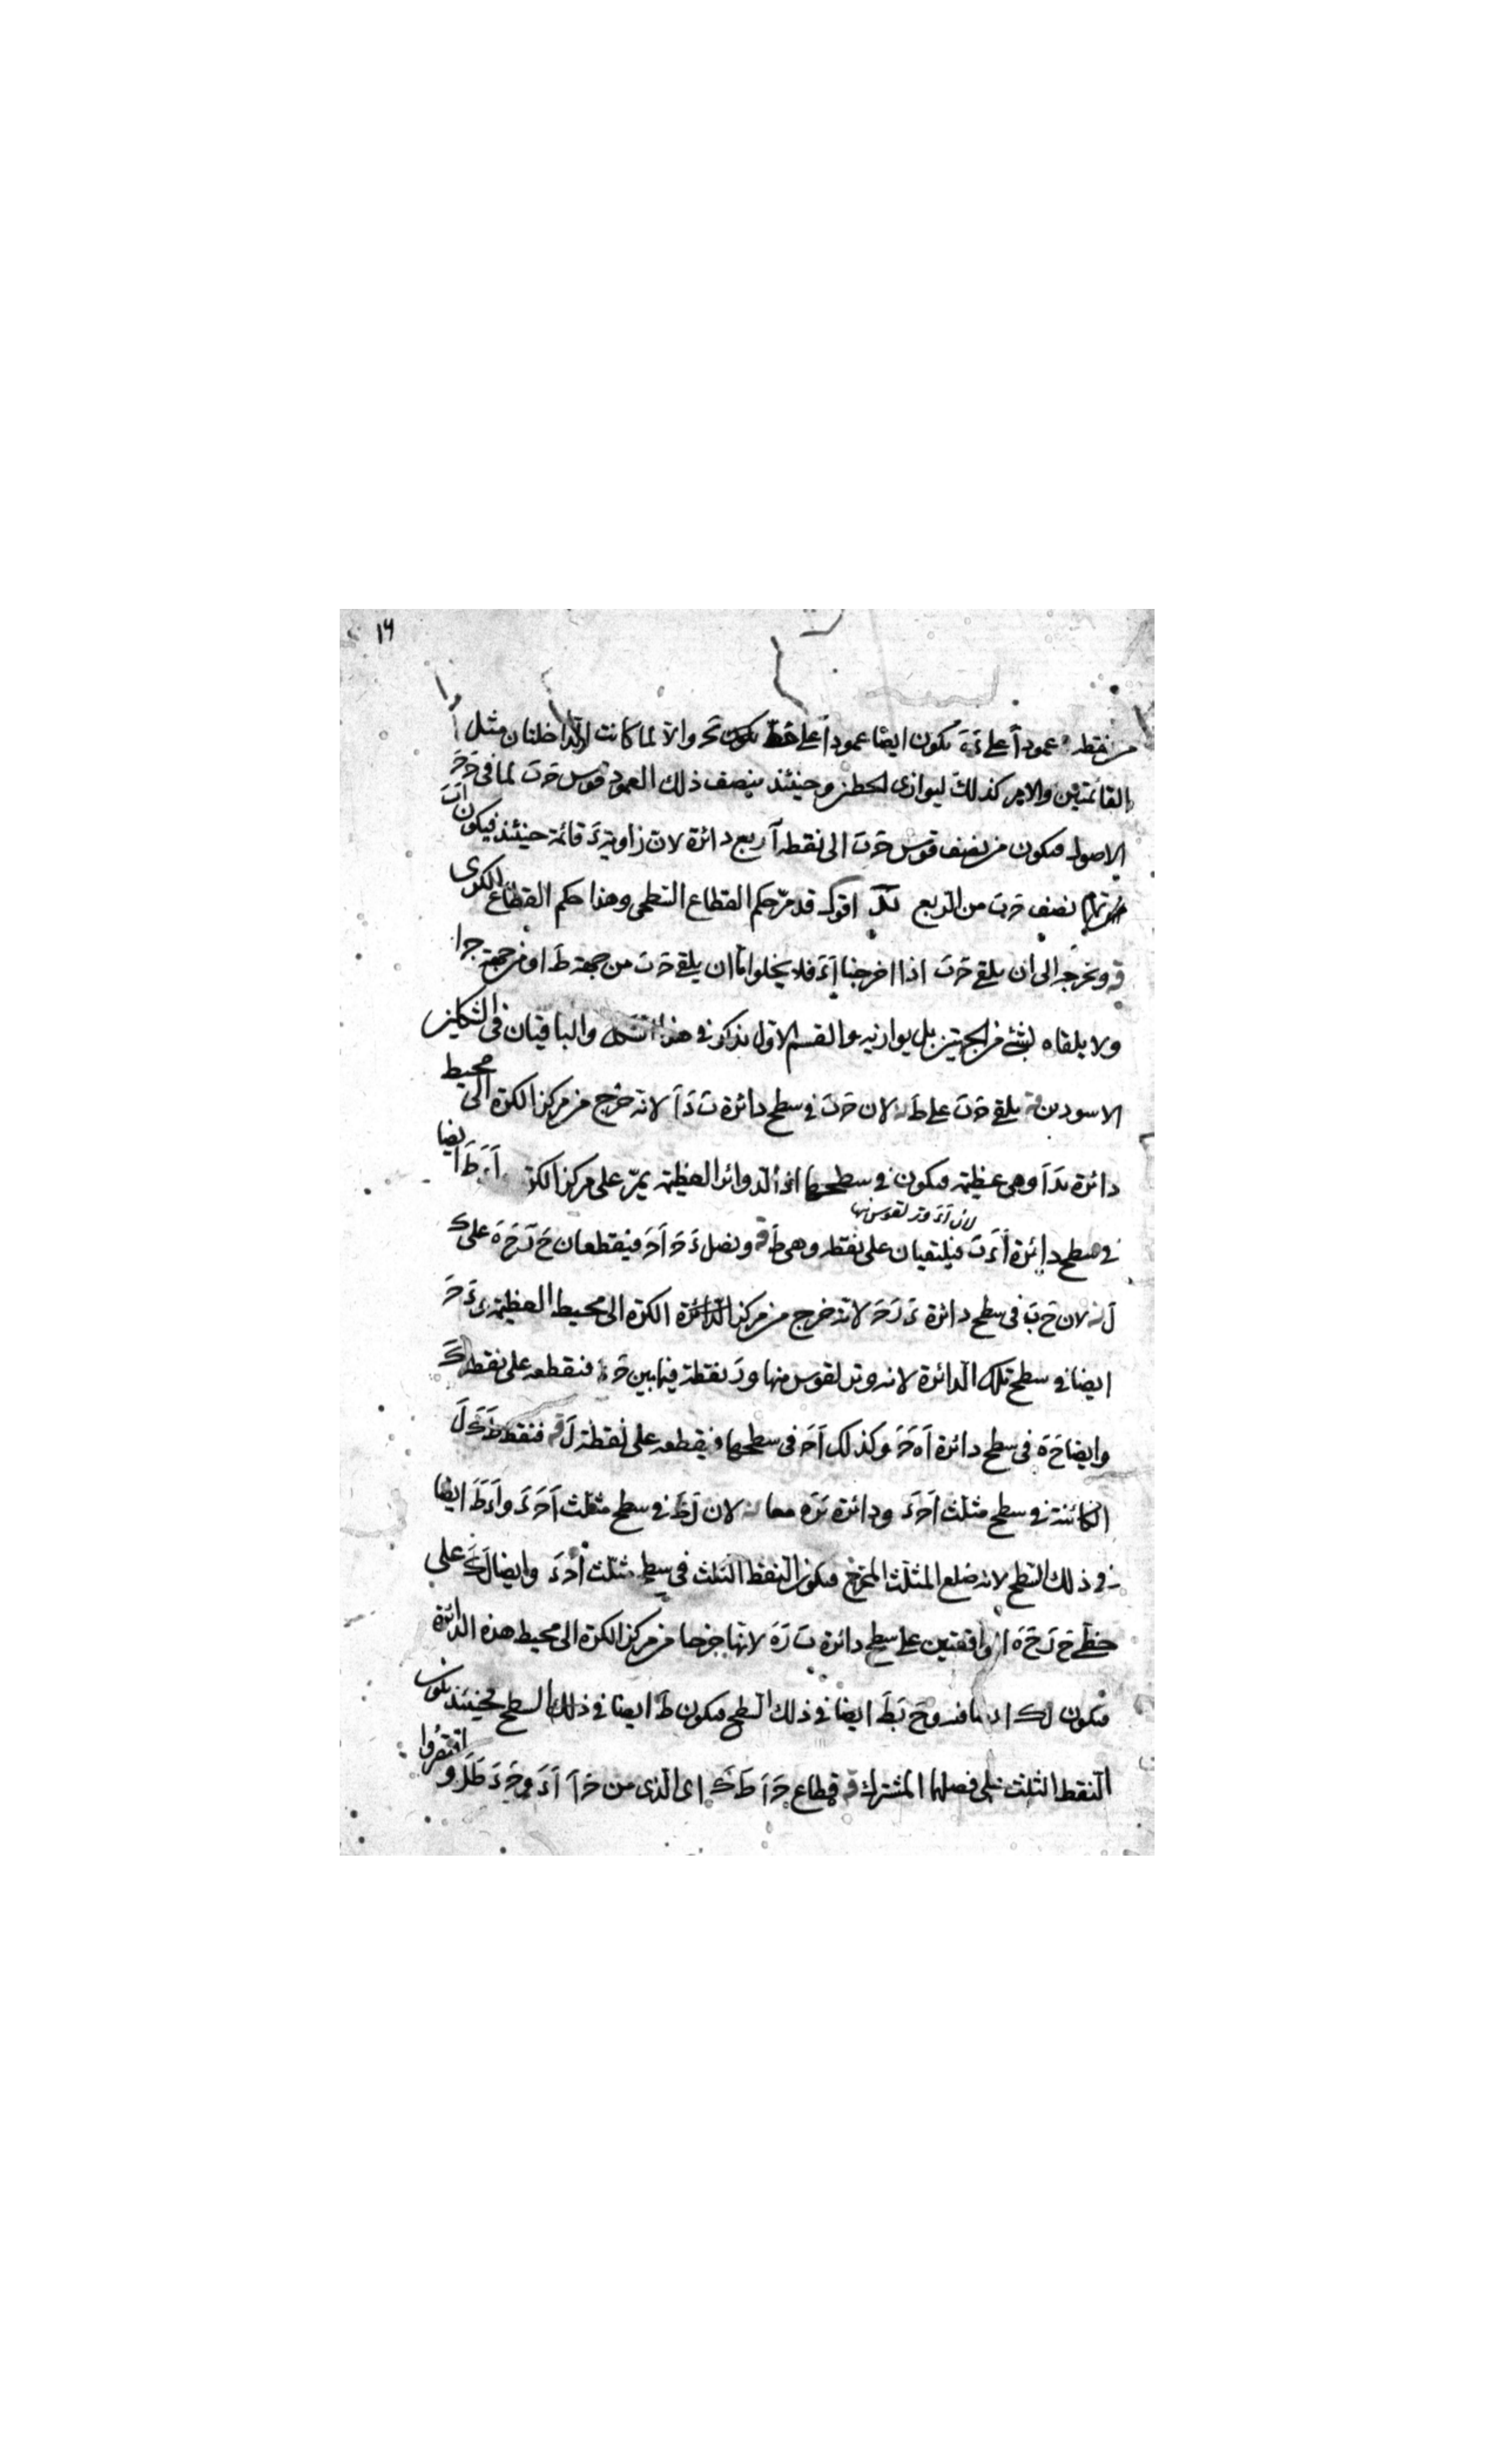 ١٦
من نقطة عمودا على ءب يكون ايضا عمودا على خط والا لما كانت الداخلتان مثل
القائمتين والامر كذلك ليوازى الخطين وحينئذ ينصف ذلك العمود قوس حب لما فى ح ح
الاصول فيكون من نصف قوس حب الى نقطة آ ربع دائرة لان زاوية ءَ قائمة حينئذ فيكون اب
نصف حب من الربع اقول قد مر حكم القطاع السطحى وهذا حكم القطاع الكرى
ونخرجه الى ان يلقى حب اذا اخرجنا اءَ فلا يخلوا اما ان يلقى حب من جهة ط او من جهة
ولا يلقاه بشئ من الجهتين بل يوازيه والقسم الاول نذكر فى هذا الشكل والباقيان فى الشكلين
الاسودين يلقى حب على ط لان حب فى سطح دائرة ب د آ لانه خرج من مركز الكرة الى محيط
دائرة بدا وهى عظيمة فيكون فى سطحها اذ الدوائر العظيمة يمر على مركز الكرة اءط ايضا
لان اء وتر لقوس منها
فى سطح دائرة اءب فيلتقيان على نقطة وهى ط ونصل ءح اح فيقطعان ح ز ح ه على ك
ل لان ح ب فى سطح دائرة ءزح لانه خرج من مركز الكرة الى محيط العظيمة ءح
ايضا فى سطح تلك الدائرة لانه وتر لقوس منها وز نقطة فيما بين حء فنقطعه على نقطة ك
وايضا ح ه فى سطح دائرة اهح وكذلك اح فى سطحها فيقطعه على نقطة ل فنقط ط ك ل
الكائنة فى سطح مثلث احء ودائرة بزه معا لان لك فى سطح مثلث احء واءط ايضا
فى ذلك السطح لانه ضلع المثلث المخرج فيكون النقط الثلث فى سطح مثلث احء وايضا لك على
خطى ح ز ح ه الواقعتين على سطح دائرة ب زه لانها خرجا من مركز الكرة الى محيط هذه الدائرة
فيكون لك ايضا فيه وح بط ايضا فى ذلك السطح فيكون ط ايضا فى ذلك السطح فحينئذ يكون
النقط الثلث على فصلها المشترك فقطاع ح ا ط ك اى الذى من ح ا اء وح ء ط ل و